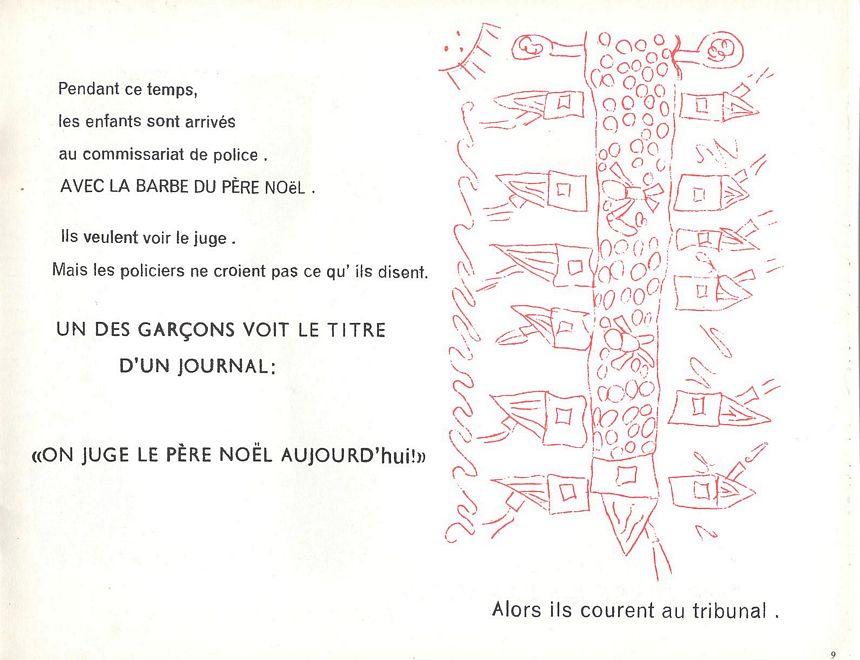 Pendant ce temps,
les enfants sont arrivés
au commissariat de police .
AVEC LA BARBE DU PÈRE NOëL .
Ils veulent voir le juge .
Mais les policiers ne croient pas ce qu' ils disent.
UN DES GARÇONS VOIT LE TITRE
D'UN JOURNAL:
«ON JUGE LE PÈRE NOËL AUJOURD'hui!»
Alors ils courent au tribunal .
9